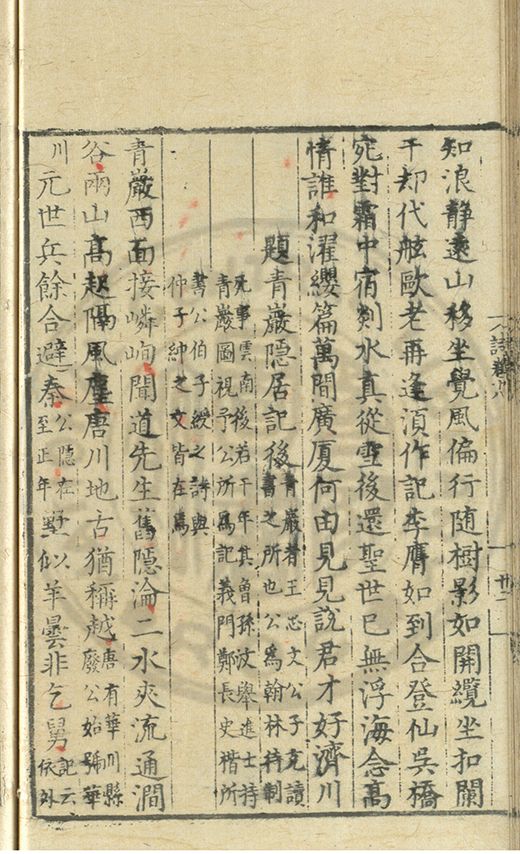 知浪靜遠山移坐覺風偏行隨樹影如開纜坐扣闌
干却代舷歐老再逢湏作記李膺如到合登仙吳橋
宛對霜中宿剡水真從雪後還聖世已無浮海念高
情誰和濯纓篇萬間廣厦何由見見說君才好濟川
題青巖隱居記後
青巖者王忠文公子充讀
書之所也公為翰林待制
死事雲南後若干年其曾孫汶舉進士持
青巖圖視予公所為記義門鄭長史楷所
書公伯子綬之詩與
仲子紳之文皆在焉
青巖西面接嶙峋聞道先生舊隱淪二水夾流通澗
谷兩山高起隔風塵唐川地古猶稱越
唐有華川縣
廢公始號華
川
元世兵餘合避秦
公隱在
至正年
墅似羊曇非乞舅
記云
依外